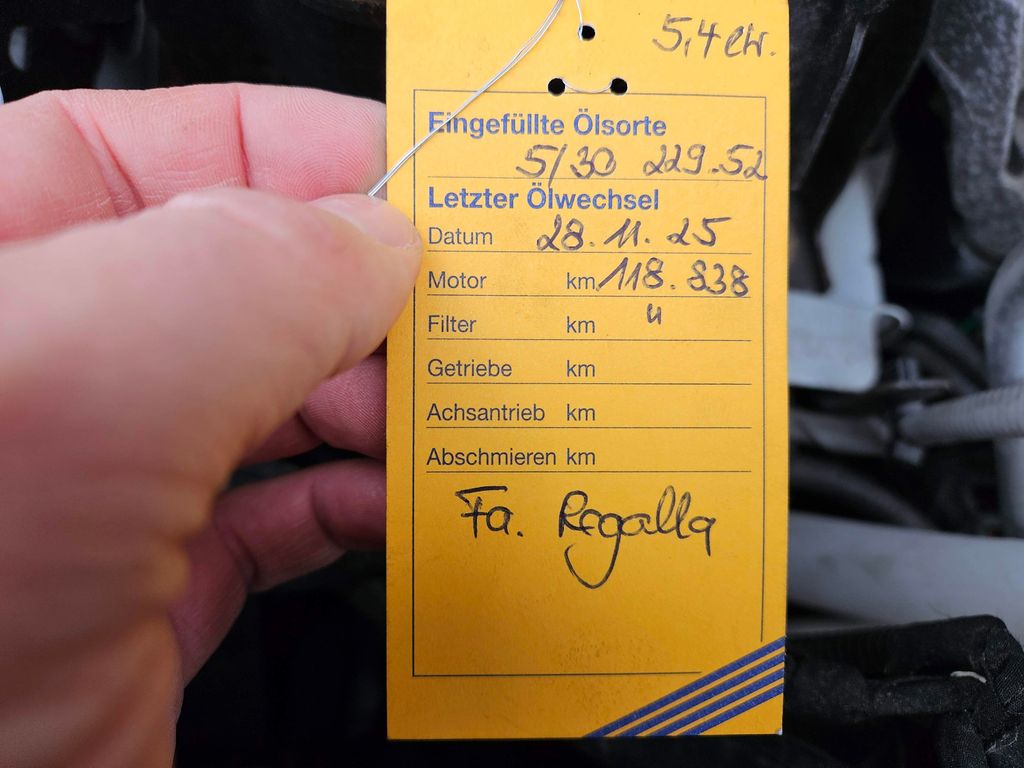 5,4 ltr.
Eingefüllte Ölsorte
5/30 229.52
Letzter Ölwechsel
Datum 28.11.25
Motor km 118.838
Filter km "
Getriebe km
Achsantrieb km
Abschmieren km
Fa. Regalla